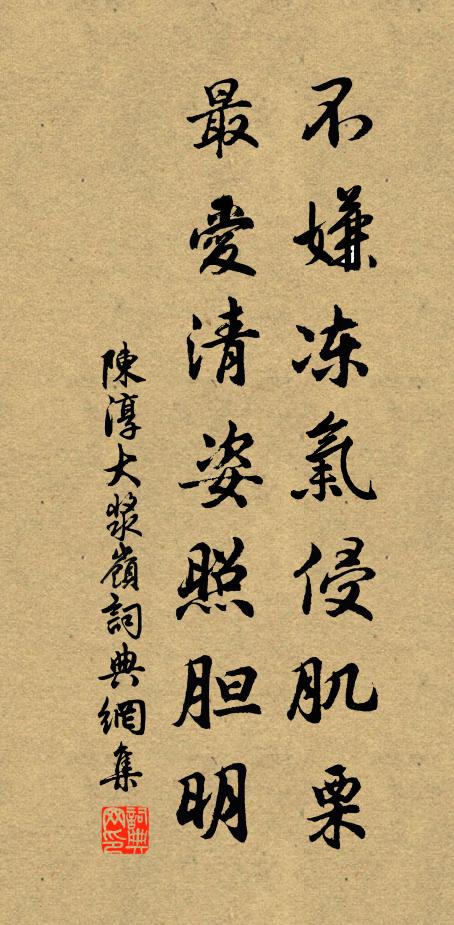 不嫌冻氣侵肌栗
最愛清姿照胆明
陳淳大漿嶺詞典網集
詞典網印